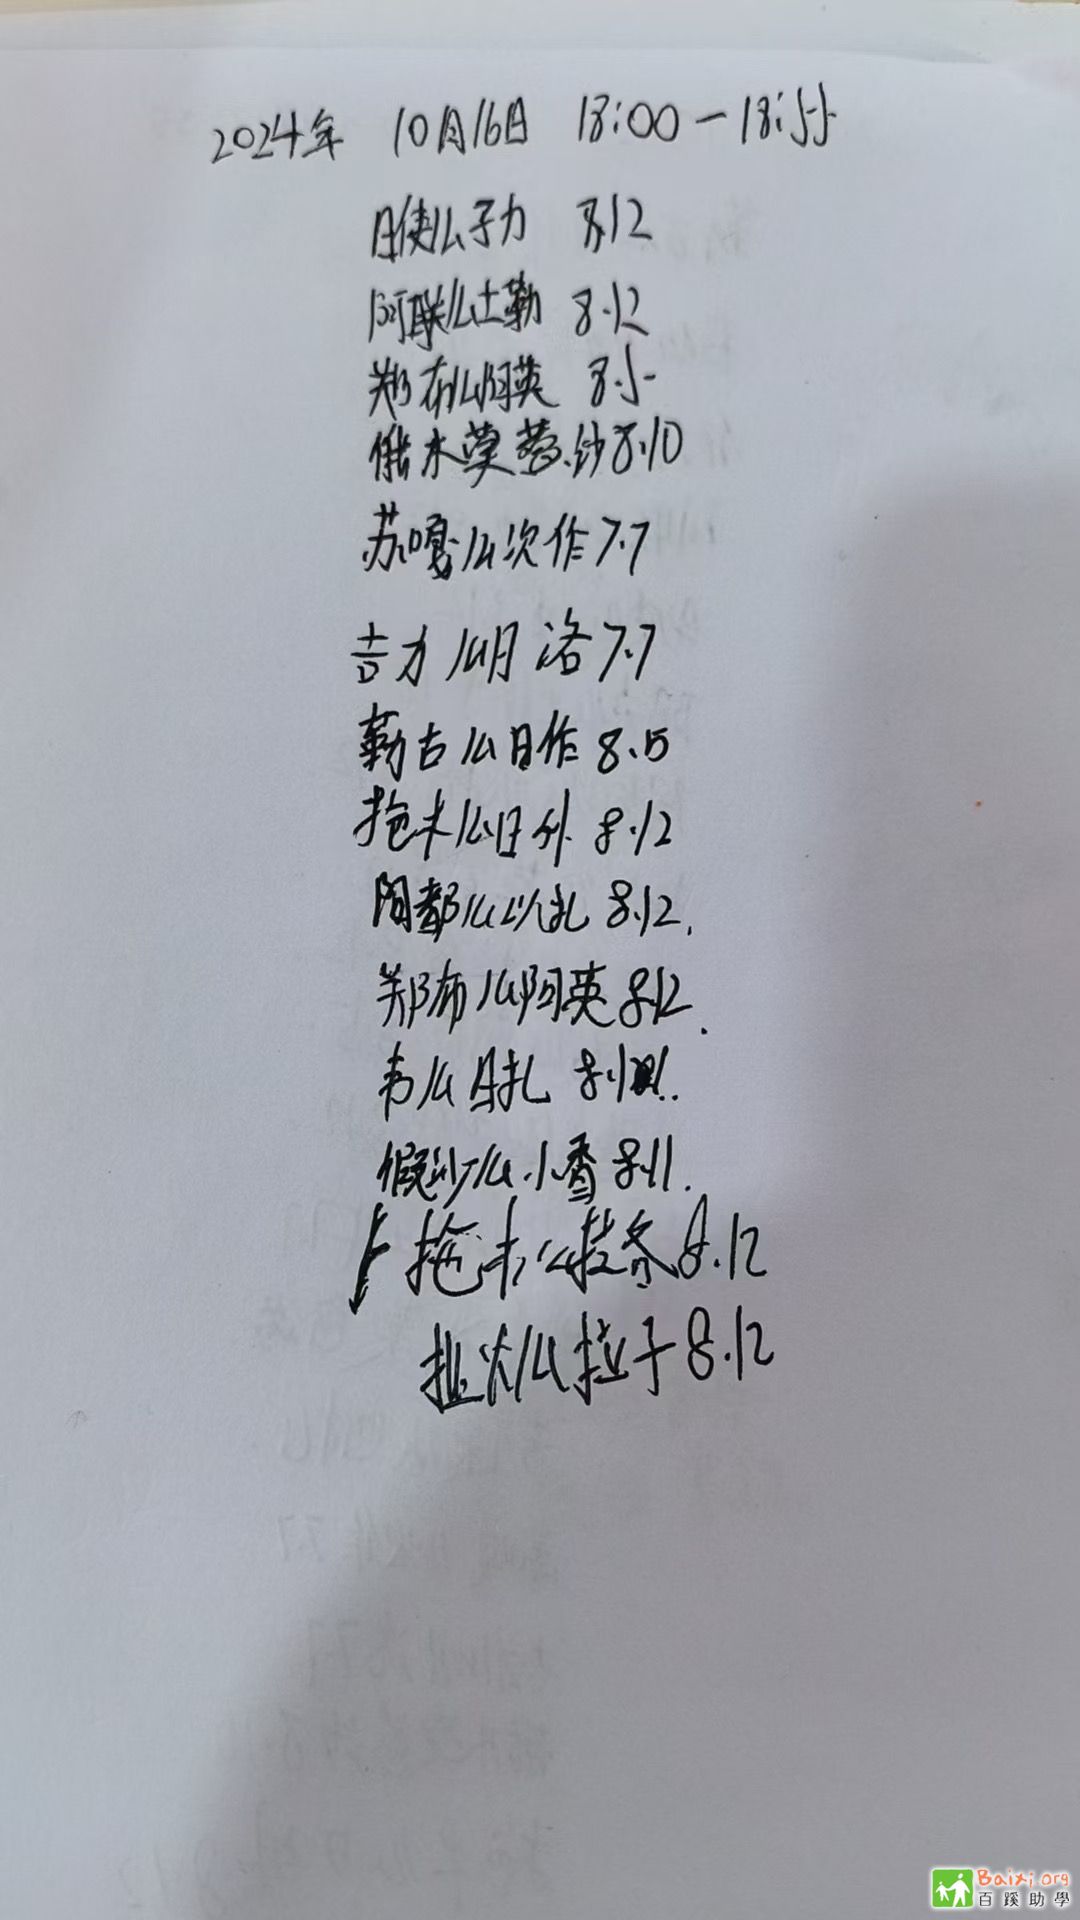 2024年 10月16日 18:00-18:55
日使么子力 8.12
阿联么土勒 8.12
郑布么阿英 8.5
俄木莫 纱 8.10
苏嘎么次作 7.7
吉力么月洛 7.7
勒古么日作 8.5
拖木么日外 8.12
阿都么以扎 8.12.
郑布么阿英 8.12.
韦么日扎
假沙么小香 8.11.
拖木么 8.12
么拉子 8.12
Baixi.org
百蹊助學